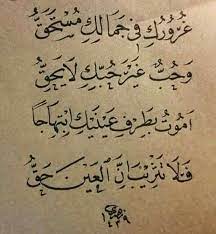 غُرُورُكِ فِي جَمَالِكِ مُسْتَحَقُّ
وَحُبُّ غَيْرُ حُبِّكِ لَا يَحِقُّ
أَمُوتُ بِطَرْفِ عَيْنَيْكِ ابْتِهَاجًا
فَلَا تَثْرِيبَ إِنَّ الْعَيْنَ حَقُّ
١٤٣٩